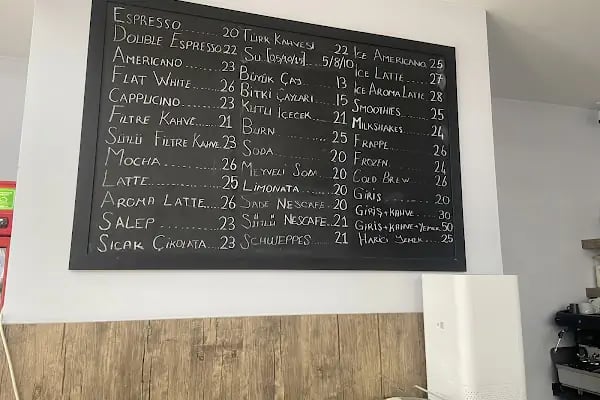 ESPRESSO 20
DOUBLE ESPRESSO 22
AMERICANO 23
FLAT WHITE 26
CAPPUCINO 23
FILTRE KAHVE 21
SÜTLÜ FILTRE KAHVE 23
MOCHA 26
LATTE 25
AROMA LATTE 26
SALEP 23
SICAK ÇIKOLATA 23
TÜRK KAHVESI 22
SU 5/8/10
BÜYÜK ÇAY 13
BITKI ÇAYLARI 15
KUTU IÇECEK 21
BURN 25
SODA 20
MEYVELI SODA 20
LIMONATA 20
SADE NESCAFE 20
SÜTLÜ NESCAFE 21
SCHWEPPES 21
ICE AMERICANO 25
ICE LATTE 27
ICE AROMA LATTE 28
SMOOTHIES 25
MILKSHAKES 24
FRAPPE 26
FROZEN 24
COLD BREW 26
GIRIŞ 20
GIRIŞ+KAHVE 30
GIRIŞ+KAHVE+YEMEK 50
HARICI YEMEK 25